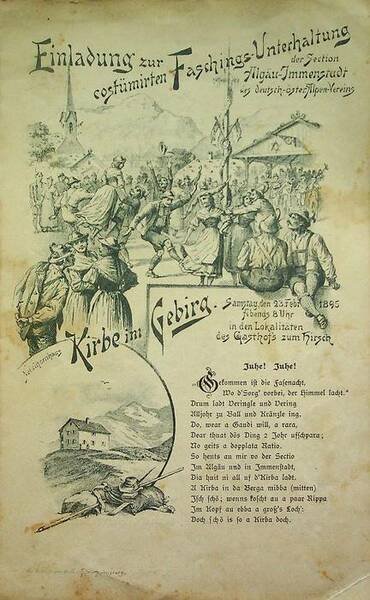 Einladung zur
costümirten Faschings-Unterhaltung
der Section
Algäu-Immenstadt
des deutsch-öster. Alpen-Vereins
Kirbe im Gebirg.
Samstag, den 23. Febr. 1895
Abends 8 Uhr
in den Lokalitäten
des Gasthofs zum Hirsch.
Juhe! Juhe!
„Gekommen ist die Fasenacht,
Wo d'Sorg' vorbei, der Himmel lacht."
Drum ladt Veringle und Vering
Alljohr zu Ball und Kränzle ing.
Do, wear a Gandi will, a rara,
Dear thuat dös Ding 2 Johr ufschpara;
No geits a dopplata Ratio.
So hents au mir vo der Sectio
Im Algäu und in Immenstadt,
Dia huit ni all uf d'Kirba ladt.
A Kirba in da Berga mibba (mitten)
Isch schö; wenns koscht au a paar Rippa
Im Kopf au ebba a groß's Loch:
Doch schö is so a Kirba doch.